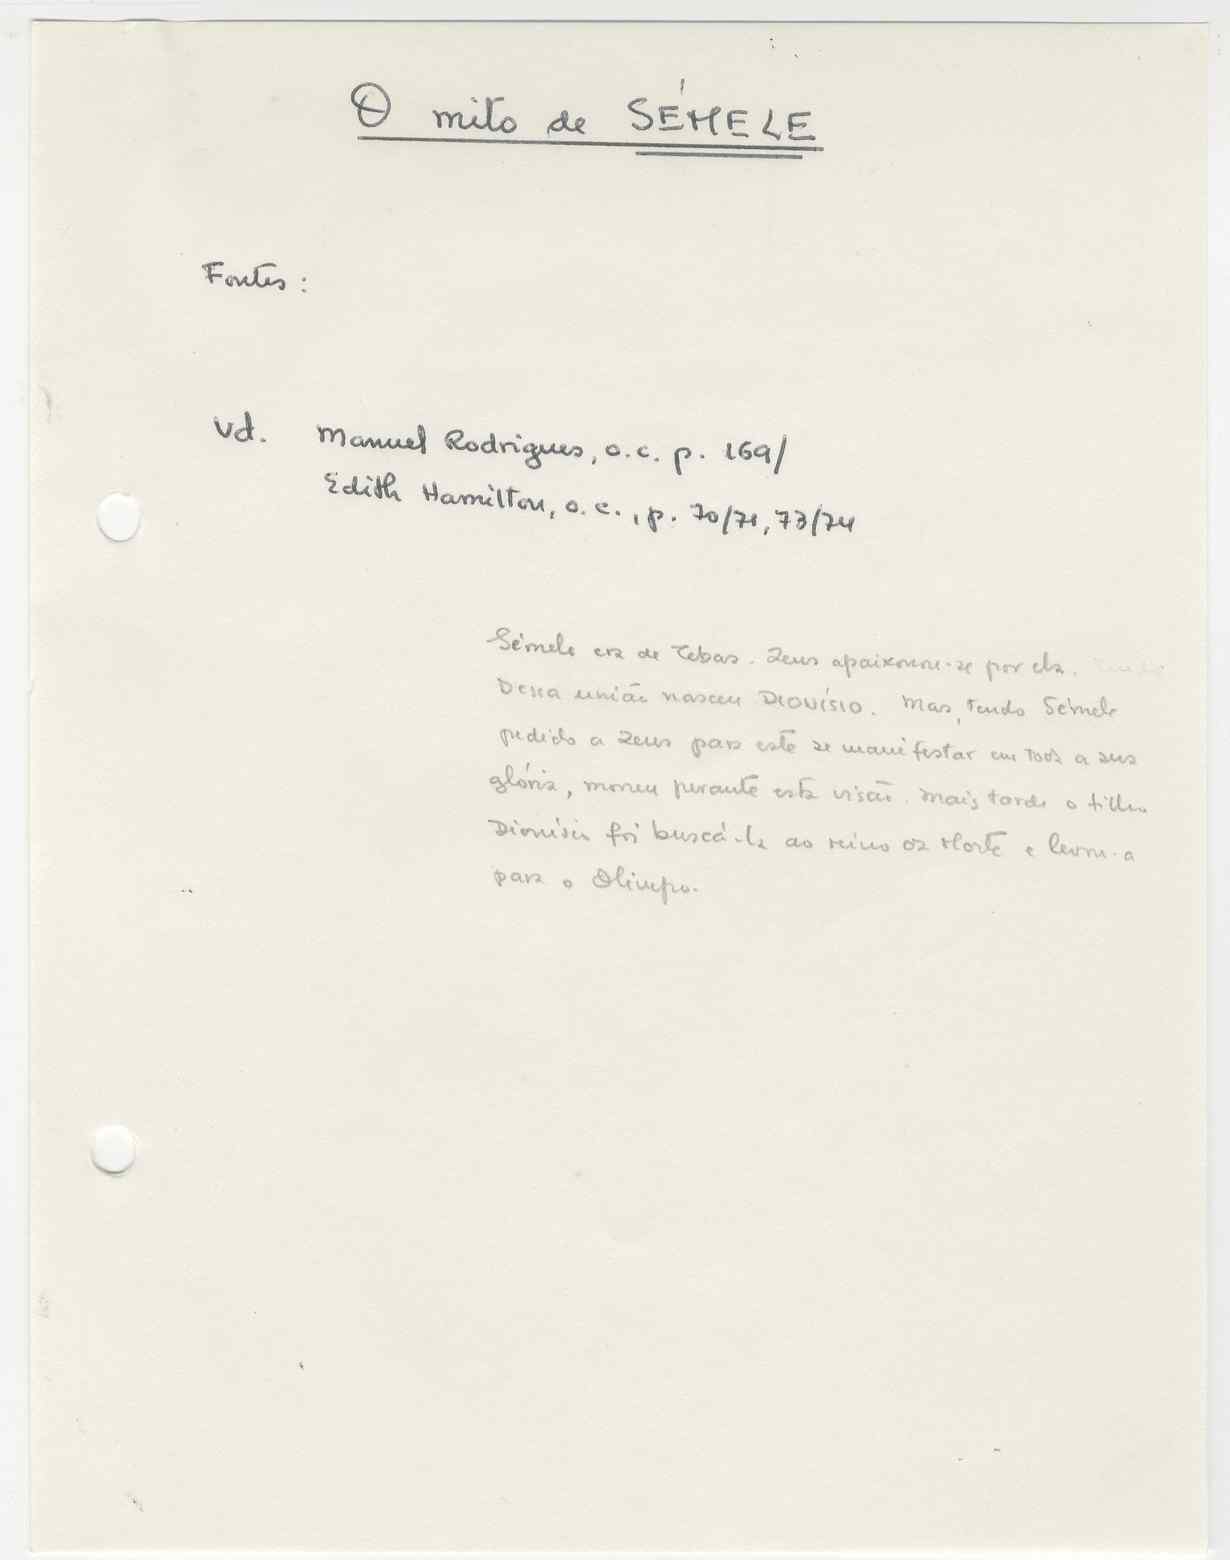 O mito de SÉMELE
Fontes :
Vd. Manuel Rodrigues, o.c. p. 169/
Edith Hamilton, o.c., p. 70/71, 73/74
Sémele era de Tebas. Zeus apaixonou-se por ela.
Dessa união nasceu DIONÍSIO. Mas, tendo Sémele
pedido a Zeus para este se manifestar em toda a sua
glória, morreu perante esta visão. Mais tarde o filho
Dionísio foi buscá-la ao reino da Morte e levou-a
para o Olimpo.